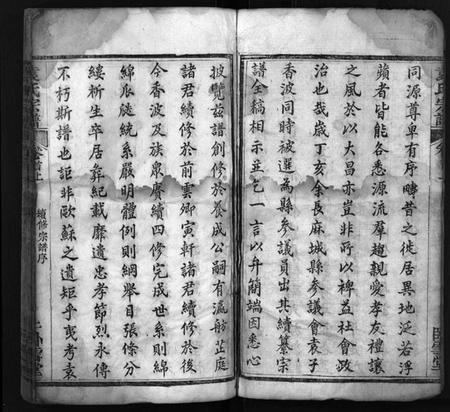 同源尊卑有序疇昔之徙居異地泛若浮
蘋者皆能各悉源流羣趨親愛孝友禮讓
之風於以大昌亦豈非所以裨益社會政
治也哉歲丁亥余長麻城縣參議會袁子
香波同時被選為縣參議員出其續纂宗
譜全稿相示並乞一言以弁簡端因悉心
披覽茲譜創修於養成公嗣有瀛舫芷庭
諸君續修於前雲卿寅軒諸君續修於後
今香波及族眾賡續四修完成世系則綿
綿瓜瓞統系嚴明體例則綱舉目張條分
縷析生卒居葬紀載靡遺忠孝節烈永傳
不朽斯譜也詎非歐蘇之遺矩乎爰考袁
袁氏宗譜
卷首上
續修宗譜序
臥雪堂